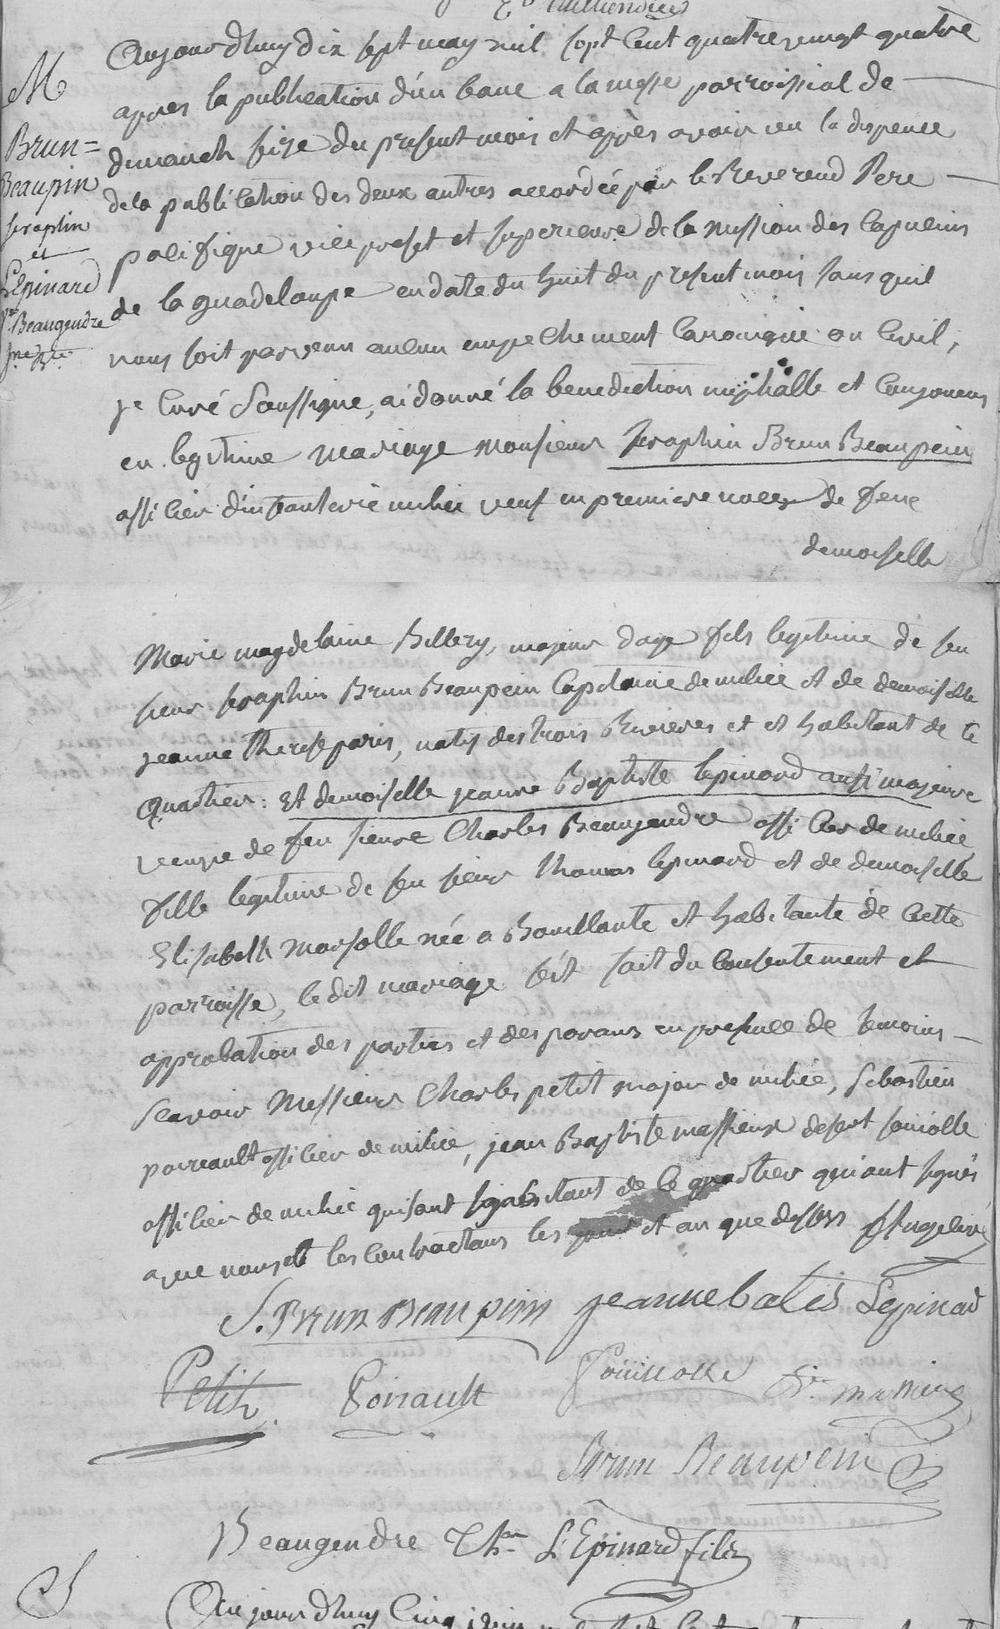 M
Brun=
Beaupin
seraphin
et
L'Epinard
ve Beaugendre
Jne Bte
Aujourd'huy dix sept may mil sept cent quatre vingt quatre
apres la publication d'un banc a la messe parroissial de
dimanch seize du present mois et après avoir vu la dispence
de la publication des deux autres accordée par le Reverend Pere
pacifique vice prefet et superieur de la mission des Capucins
de la guadeloupe en date du huit du present mois sans quil
nous soit parvenu aucun empechement Canonique ou Civil,
je Curé Soussigne, ai donné la benediction nuptialle et Conjoint
en legitime mariage Monsieur Seraphin Brun Beaupein
officier d'infanterie milice veuf en premiere noces de feue
demoiselle
Marie magdelaine Billery, majeur d'age fils legitime de feu
sieur Seraphin Brun Beaupein Capitaine de milice et de demoiselle
jeanne therese paris, natif des trois Rivieres et et habitant de ce
quartier: Et demoiselle jeanne Baptiste lepinard aussi majeure
veuve de feu sieur Charles Beaugendre officier de milice
fille legitime de feu sieur thomas lepinard et de demoiselle
Elisabeth marsolle née a Bouillante et habitante de Cette
parroisse, le dit mariage fait du Consentement et
approbation des parties et des parans en presence de temoins
scavoir Messieurs Charles petit major de milice, Sebastien
poireault officier de milice, jean Baptiste massieux
officier de milice habitant de ce quartier qui ont signés
avec nous et les Contractans les jour et an que dessus
S. Brun Beaupein jeanne batis Lepinard
Petit Poirault
Brun Beaupein
Beaugendre Th L'Epinard fils
Aujourd'huy Cinq juin